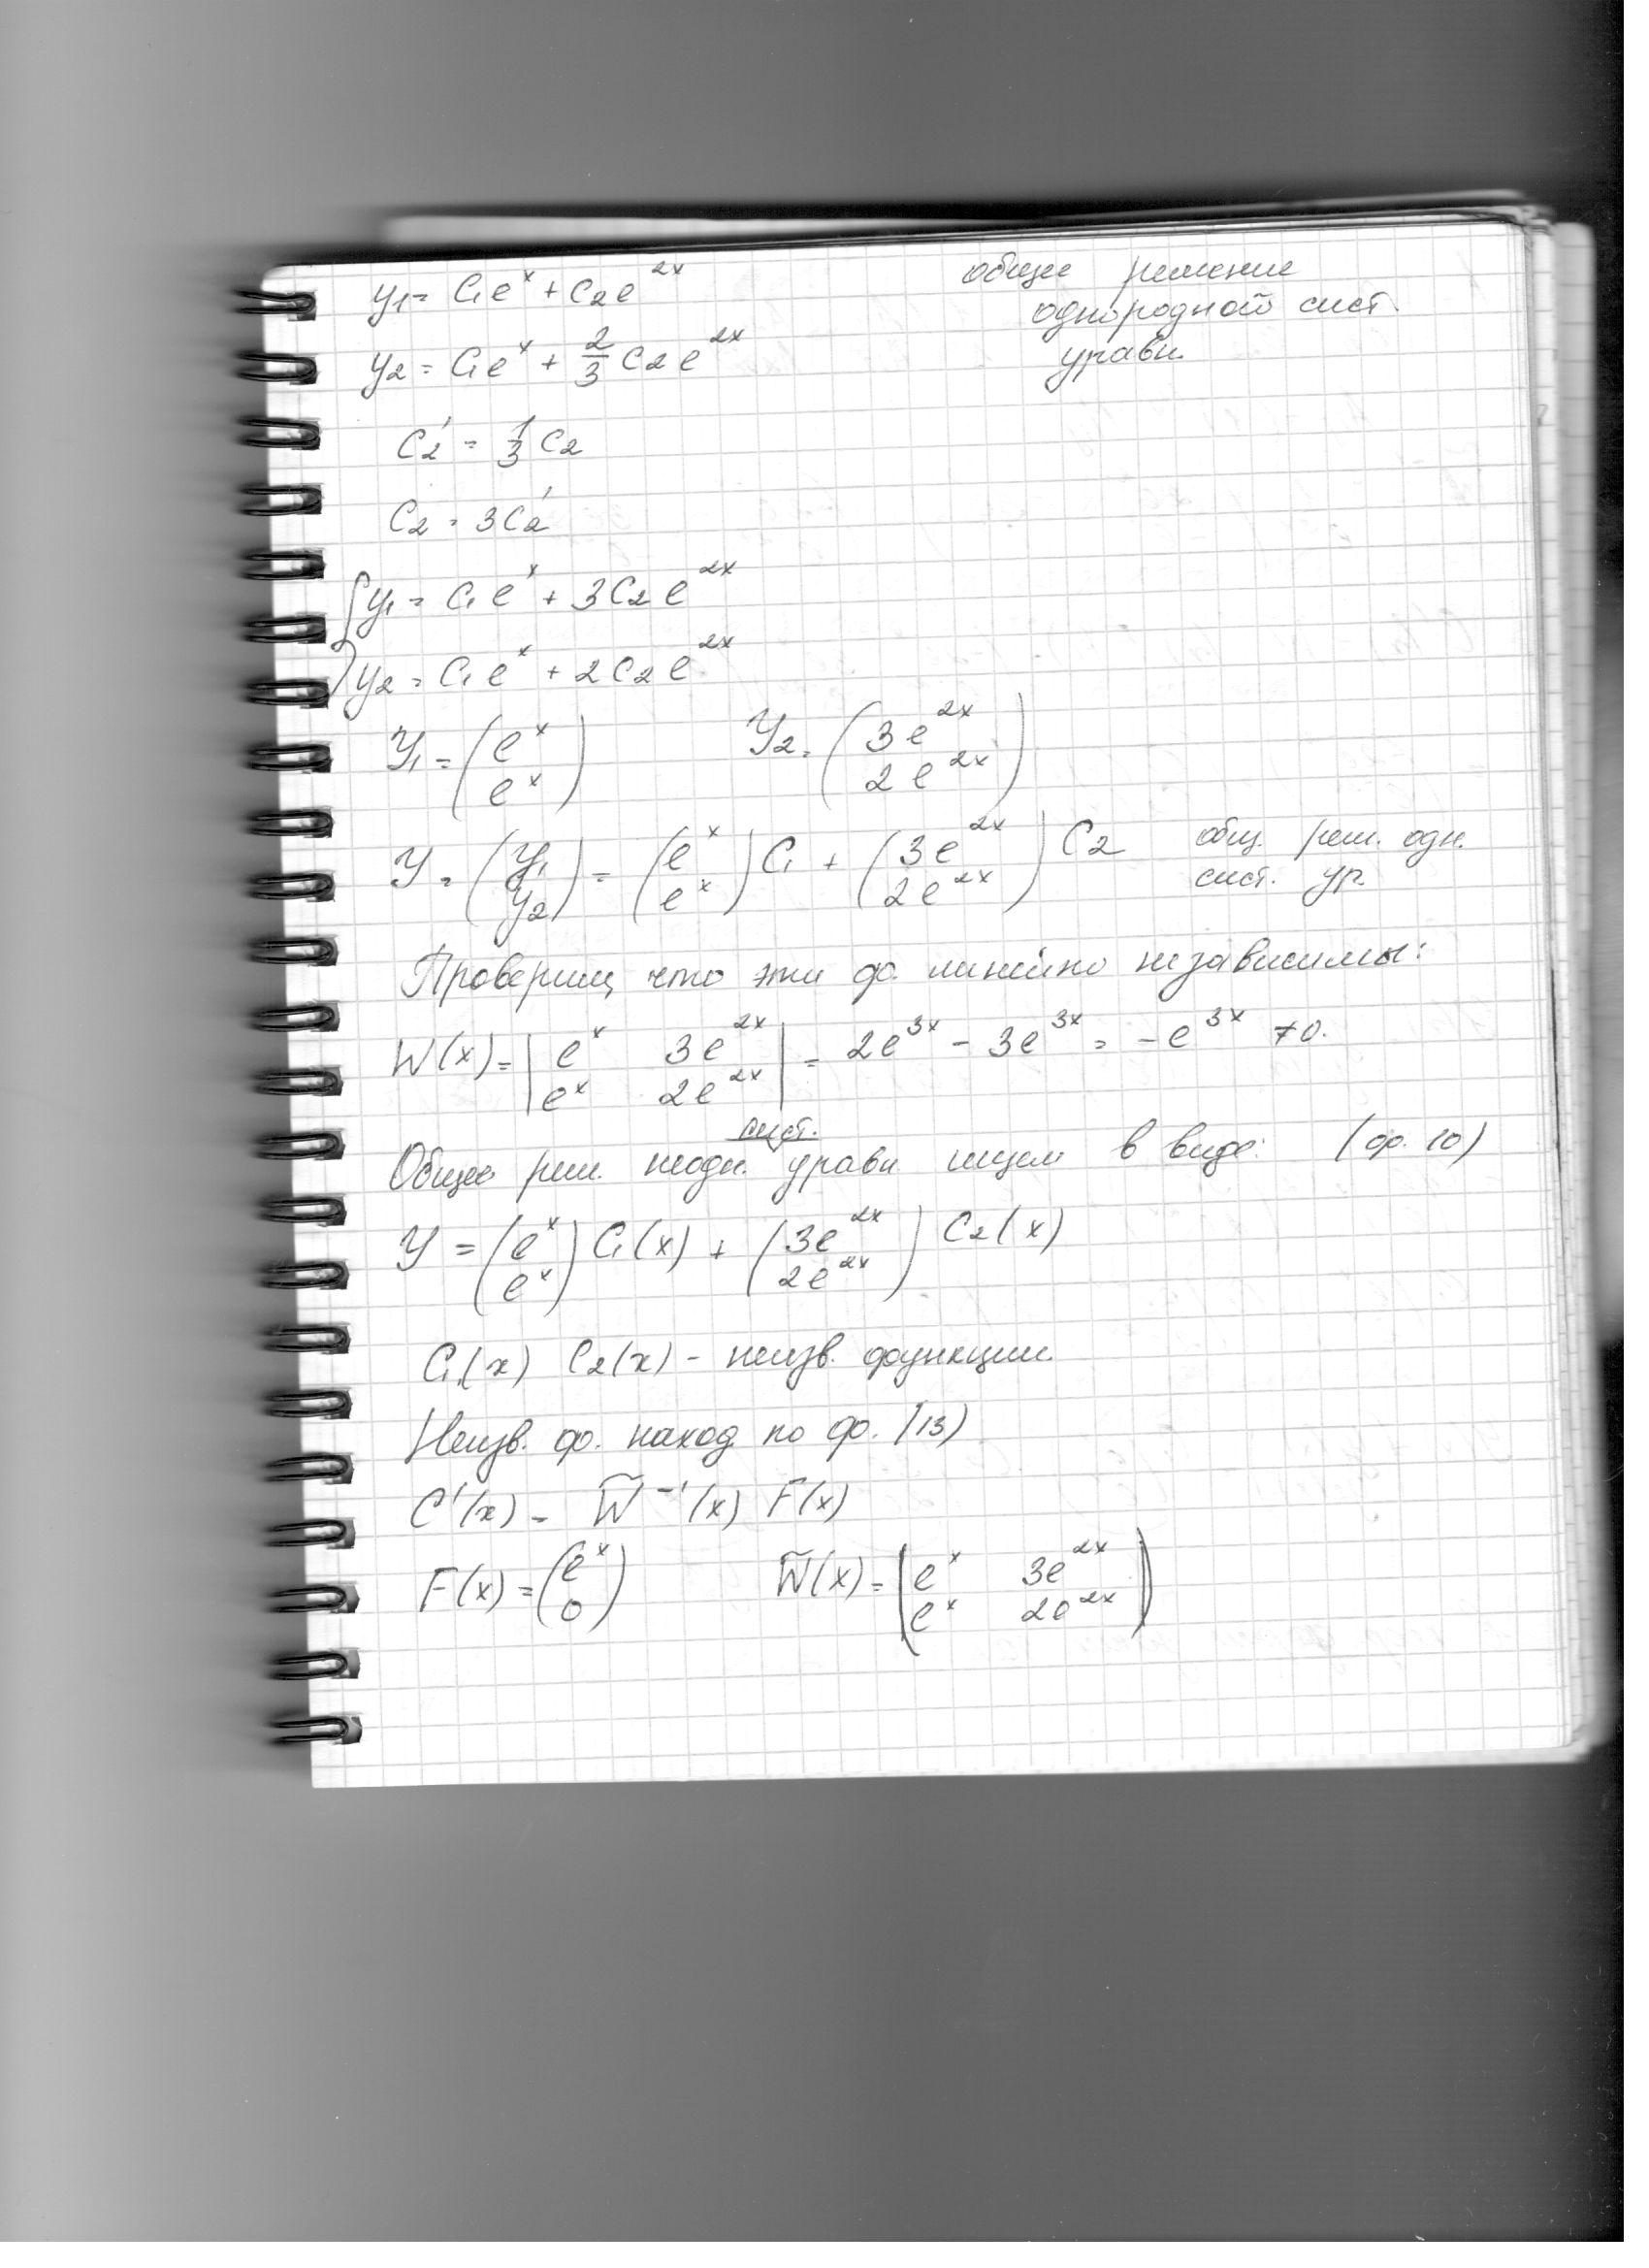 y₁ = C₁eˣ + C₂e²ˣ общее решение
однородной сист.
y₂ = C₁eˣ + 2/3 C₂e²ˣ уравн.
C₂' = 1/3 C₂
C₂ = 3C₂'
{ y₁ = C₁eˣ + 3C₂e²ˣ
y₂ = C₁eˣ + 2C₂e²ˣ
Y₁ = (eˣ Y₂ = (3e²ˣ
eˣ) 2e²ˣ)
Y = (y₁ = (eˣ C₁ + (3e²ˣ C₂ общ. реш. одн.
y₂) eˣ) 2e²ˣ) сист. ур.
Проверим, что эти ф. линейно независимы:
W(x) = |eˣ 3e²ˣ = 2e³ˣ - 3e³ˣ = -e³ˣ ≠ 0.
eˣ 2e²ˣ|
сист.
Общее реш. неодн. уравн ищем в виде: (ф. 10)
Y = (eˣ C₁(x) + (3e²ˣ C₂(x)
eˣ) 2e²ˣ)
C₁(x) C₂(x) - неизв. функции.
Неизв. ф. наход по ф. (13)
C'(x) = W̃⁻¹(x) F(x)
F(x) = (eˣ W̃(x) = (eˣ 3e²ˣ
0) eˣ 2e²ˣ)